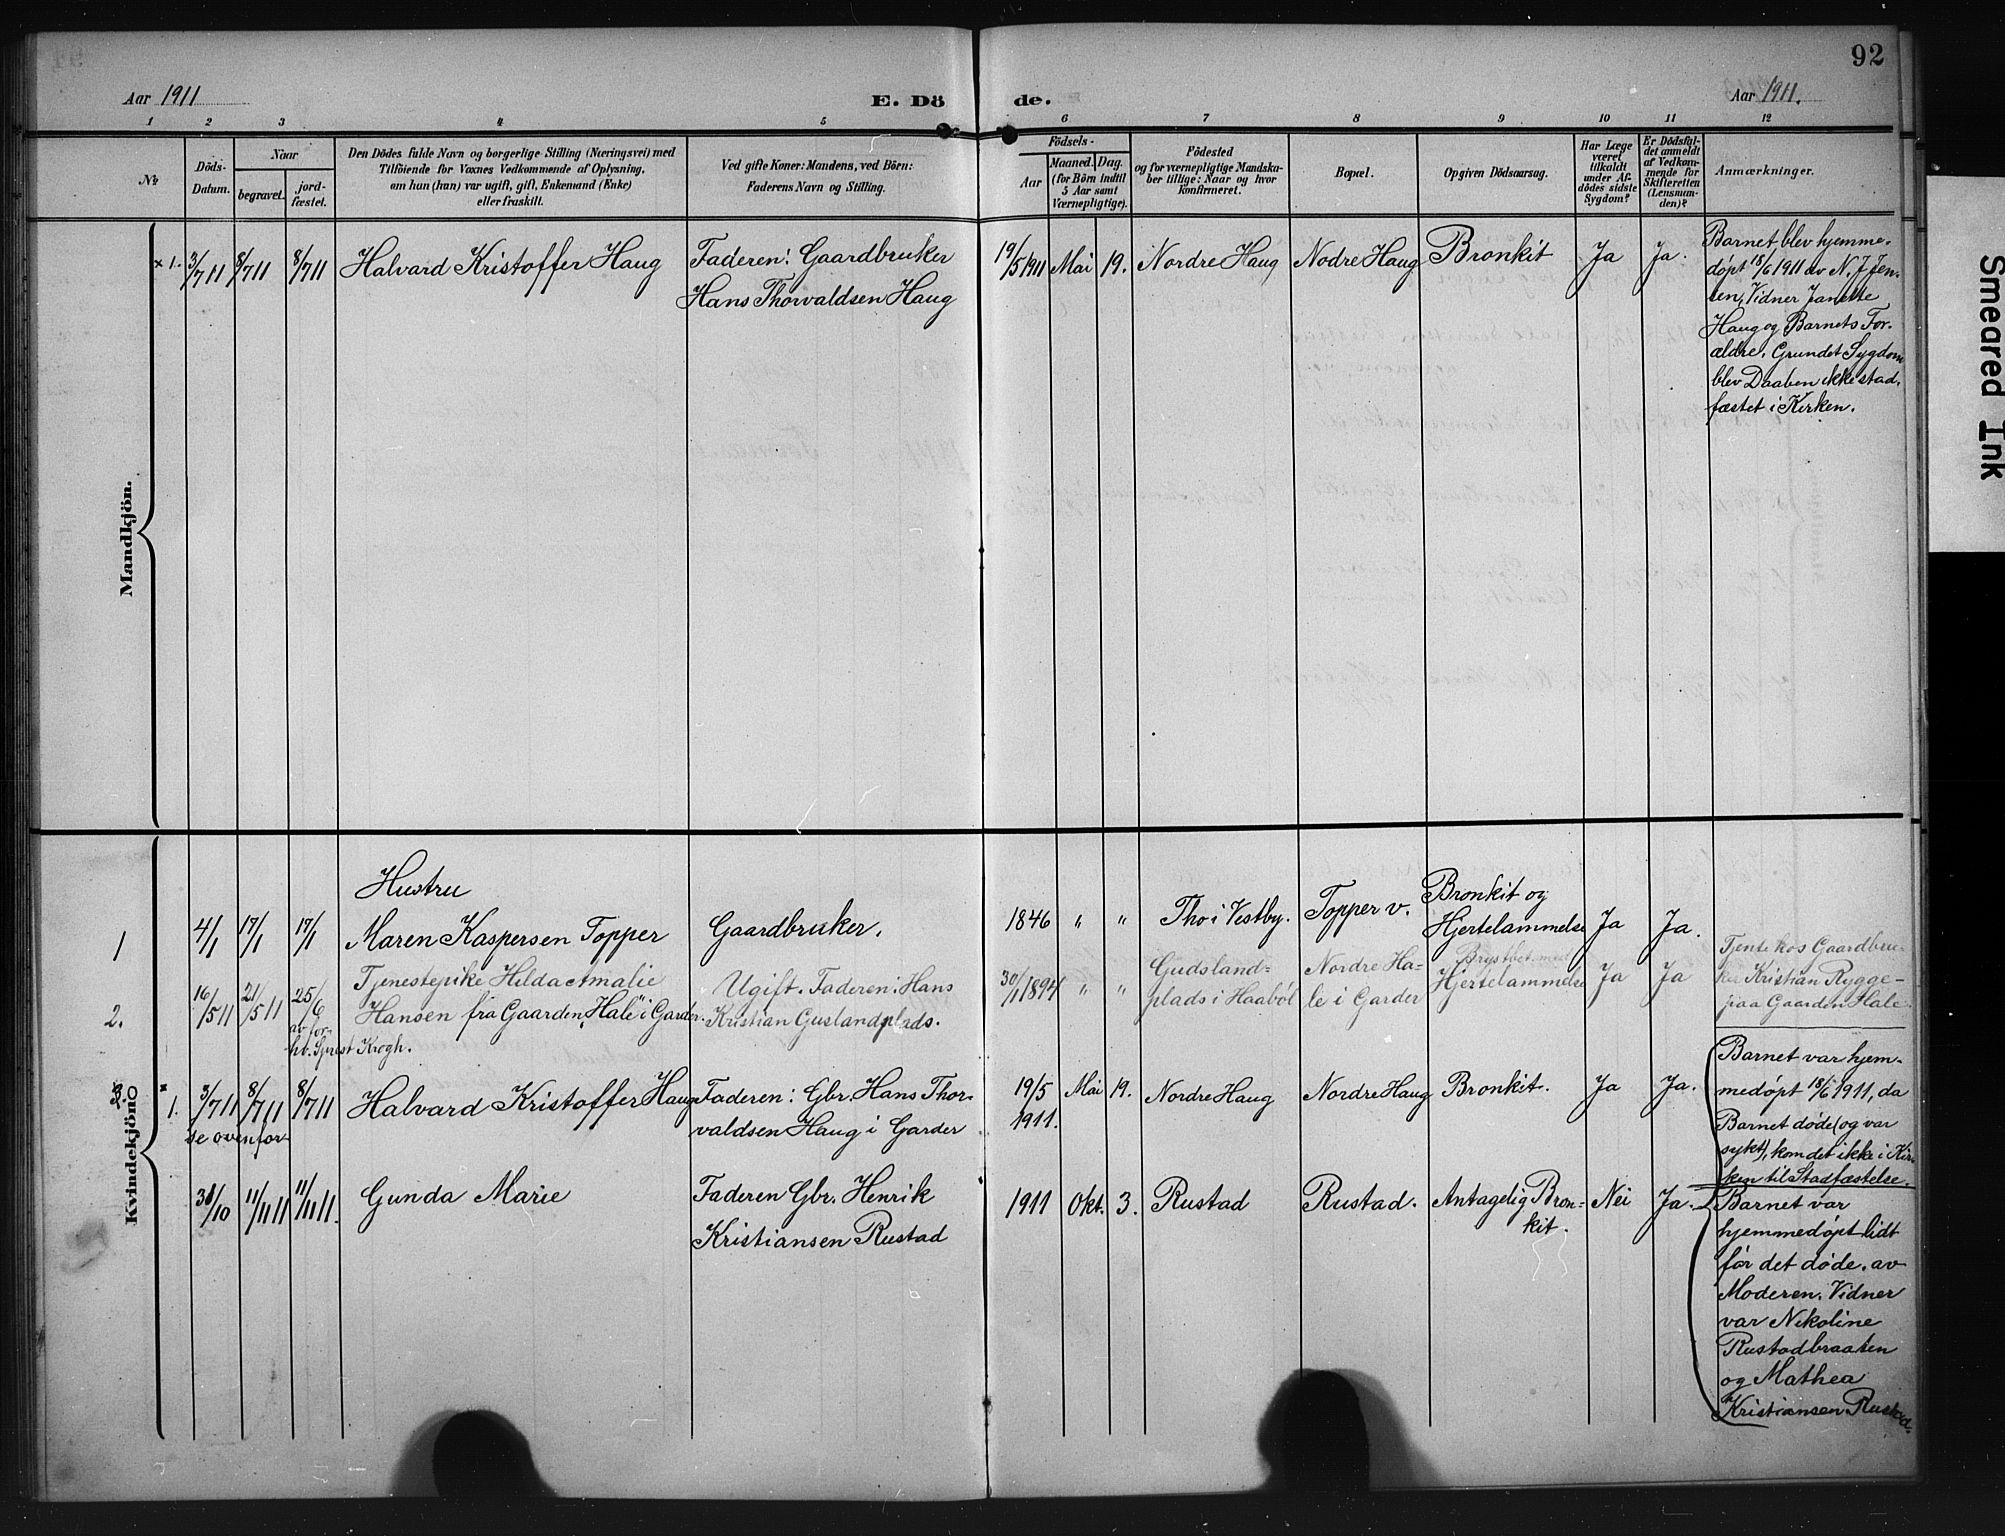 92
Aar 1911
E. Dö
de.
Aar 1911.
1 2 3 4 5 6 7 8 9 10 11 12
№
Döds-
Datum.
Naar
begravet.
jord-
fæstet.
Den Dödes fulde Navn og borgerlige Stilling (Næringsvei) med
Tilföiende for Voxnes Vedkommende af Oplysning,
om han (hun) var ugift, gift, Enkemand (Enke)
eller fraskilt.
Ved gifte Koner: Mandens, ved Börn:
Faderens Navn og Stilling.
Födsels-
Aar
Maaned. Dag.
(for Börn indtil
5 Aar samt
Værnepligtige).
Födested
og for værnepligtige Mandska-
ber tillige: Naar og hvor
Konfirmeret.
Bopæl.
Opgiven Dödsaarsag.
Har Læge
været
tilkaldt
under Af-
dödes sidste
Sygdom?
Er Dödsfal-
det anmeldt
af Vedkom-
mende for
Skifteretten
(Lensman-
den)?
Anmærkninger.
Mandkjön.
× 1. 3/7 11 8/7 11 8/7 11 Halvard Kristoffer Haug Faderen: Gaardbruker
Hans Thorvaldsen Haug
19/5 1911 Mai 19. Nordre Haug Nodre Haug Bronkit Ja Ja.
Barnet blev hjemme-
døpt 18/6 1911 av N. J Jen-
sen, Vidner Janette
Haug og Barnets For-
ældre. Grundet Sygdom
blev Daaben ikke stad-
fæstet i Kirken.
Smeared Ink
Kvindekjön
Hustru
1 4/1 17/1 17/1 Maren Kaspersen Topper Gaardbruker.
1846 " " Tho i Vestby. Topper v. Bronkit og
Hjertelammelse Ja Ja.
2. 16/5 11 21/5 11 25/6 Tjenestepike Hilda Amalie
Hansen fra Gaarden Hale i Garder.
av for-
hv. Sprest Krogh.
Ugift. Faderen: Hans
Kristian Guslandplads.
30/11 1894 " " Gudsland-
plads i Haabøl Nordre Ha-
le i Garder Brystbet. med
Hjertelammelse Ja Ja
Tjente hos Gaardbru-
ker Kristian Rygge-
paa Gaarden Hale.
× 1. 3/7 11 8/7 11 8/7 11 Halvard Kristoffer Haug Faderen: Gbr. Hans Thor-
se ovenfor
valdsen Haug i Garder
19/5
1911. Mai 19. Nordre Haug Nordre Haug Bronkit. Ja Ja.
Barnet var hjem-
medøpt 18/6 1911, da
Barnet døde (og var
sykt), kom det ikke i Kir-
ken til Stadfæstelse.
/10 11/11 11 11/11 11. Gunda Marie Faderen Gbr. Henrik
Kristiansen Rustad
1911 Okt. 3. Rustad Rustad. Antagelig Bron-
kit. Nei Ja.
Barnet var
hjemmedøpt lidt
før det døde. av
Moderen. Vidner
var Nikoline
Rustadbraaten
og Mathea
Kristiansen Rustad.